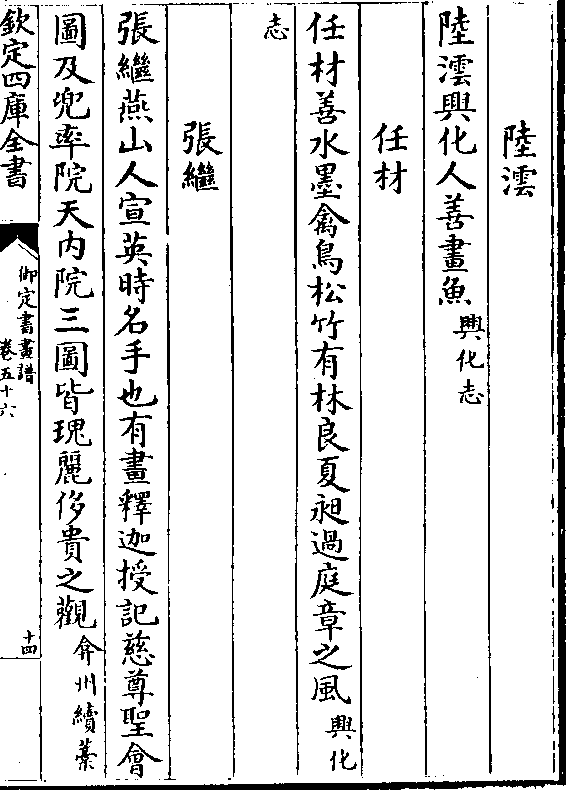 陸澐
陸澐興化人善畫魚興化志
任材
任材善水墨禽鳥松竹有林良夏昶過庭章之風興化
志
張繼
張繼燕山人宣英時名手也有畫釋迦授記慈尊聖會
圖及兜率院天内院三圖皆瑰麗侈貴之觀弇州續藁
欽定四庫全書
御定書畫譜
卷五十六
十四